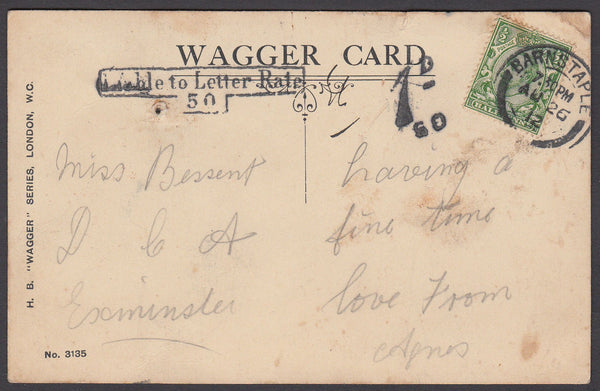 WAGGER CARD
Liable to Letter Rate
50
1D
50
BARNSTAPLE
PM
AU 26
12
Miss Bessent
D C A
Exminster
having a
fine time
love From
Agnes
H. B. "WAGGER" SERIES, LONDON, W.C.
No. 3135